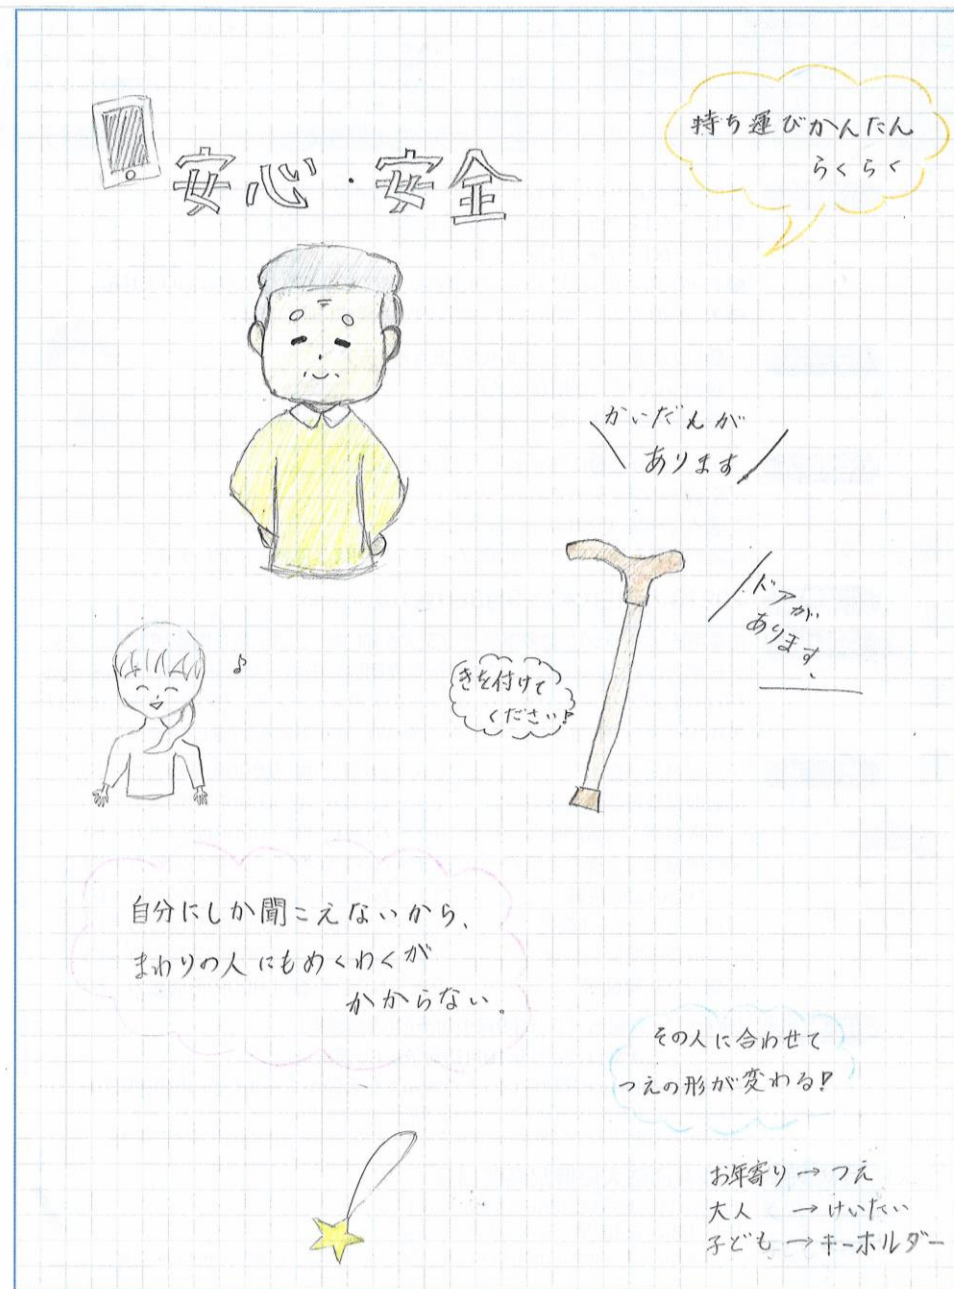 持ち運びかんたん
らくらく
安心・安全
かいだんが
あります
ドアが
あります、
きを付けて
ください!
自分にしか聞こえないから、
まわりの人にもめくわくが
かからない。
その人に合わせて
つえの形が変わる!
お年寄り→つえ
大人 →けいたい
子ども→キーホルダー